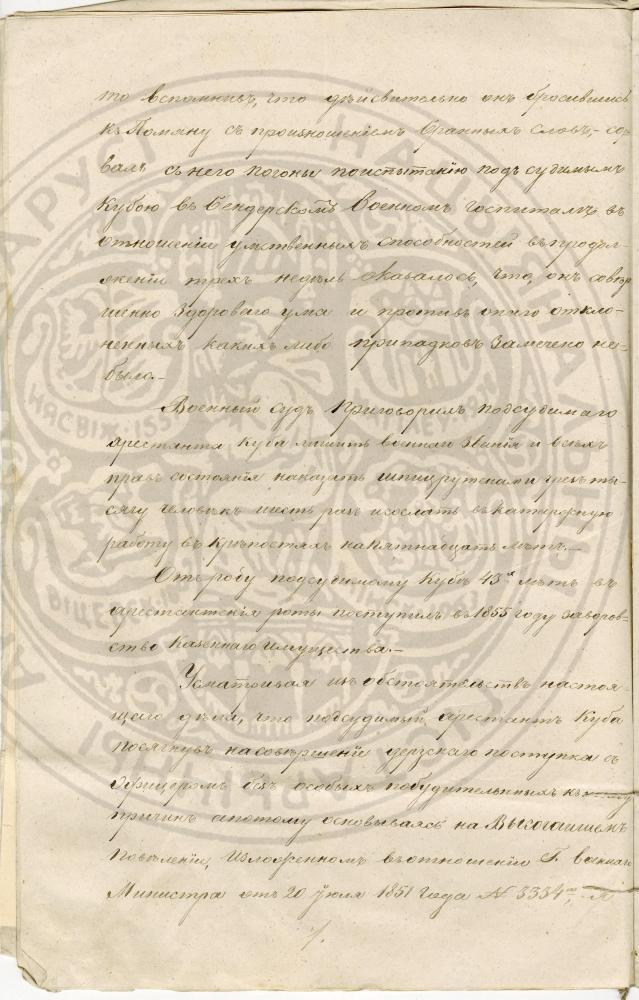 то вспомнивъ, что дѣйсвительно онъ бросившись
къ Поляну съ произношеніемъ бранныхъ словъ, со-
валъ съ него погоны поиспытанію подъ судимымъ
Кубою въ Бендерскомъ Военномъ госпиталѣ въ
отношеніи умственныхъ способностей въ продол-
женіи трехъ недѣль оказалось, что, онъ совер
шенно здороваго ума и противъ онаго откло-
ненныхъ какихъ либо припадковъ замечено не-
было.-
Военный судъ приговорилъ подсудимаго
арестанта Куба лишить военнаго званія и всѣхъ
правъ состоянія наказать шпицрутенами чрезъ ты-
сячу человѣкъ шесть разъ исослать въ каторжную
работу въ крѣпостяхъ на пятнадцать лѣтъ.-
Отъ роду подсудимому Кубѣ 43х лѣтъ въ
арестантскія роты поступилъ въ 1855 году заворов-
ство казеннаго имущества.-
Усматривая изъ обстоятельствъ настоя-
щаго дѣла, что подсудимый арестантъ Куба
посягнувъ насовершеніе дерзскаго поступка съ
Офицеромъ безъ особыхъ побудительныхъ къ
причинъ апотому основываясь на Высочайшемъ
повелѣніи, изложенномъ въ отношеніи Г. военнаго
Министра отъ 20 Июля 1851 года № 3334, я
НЯСВІЖ